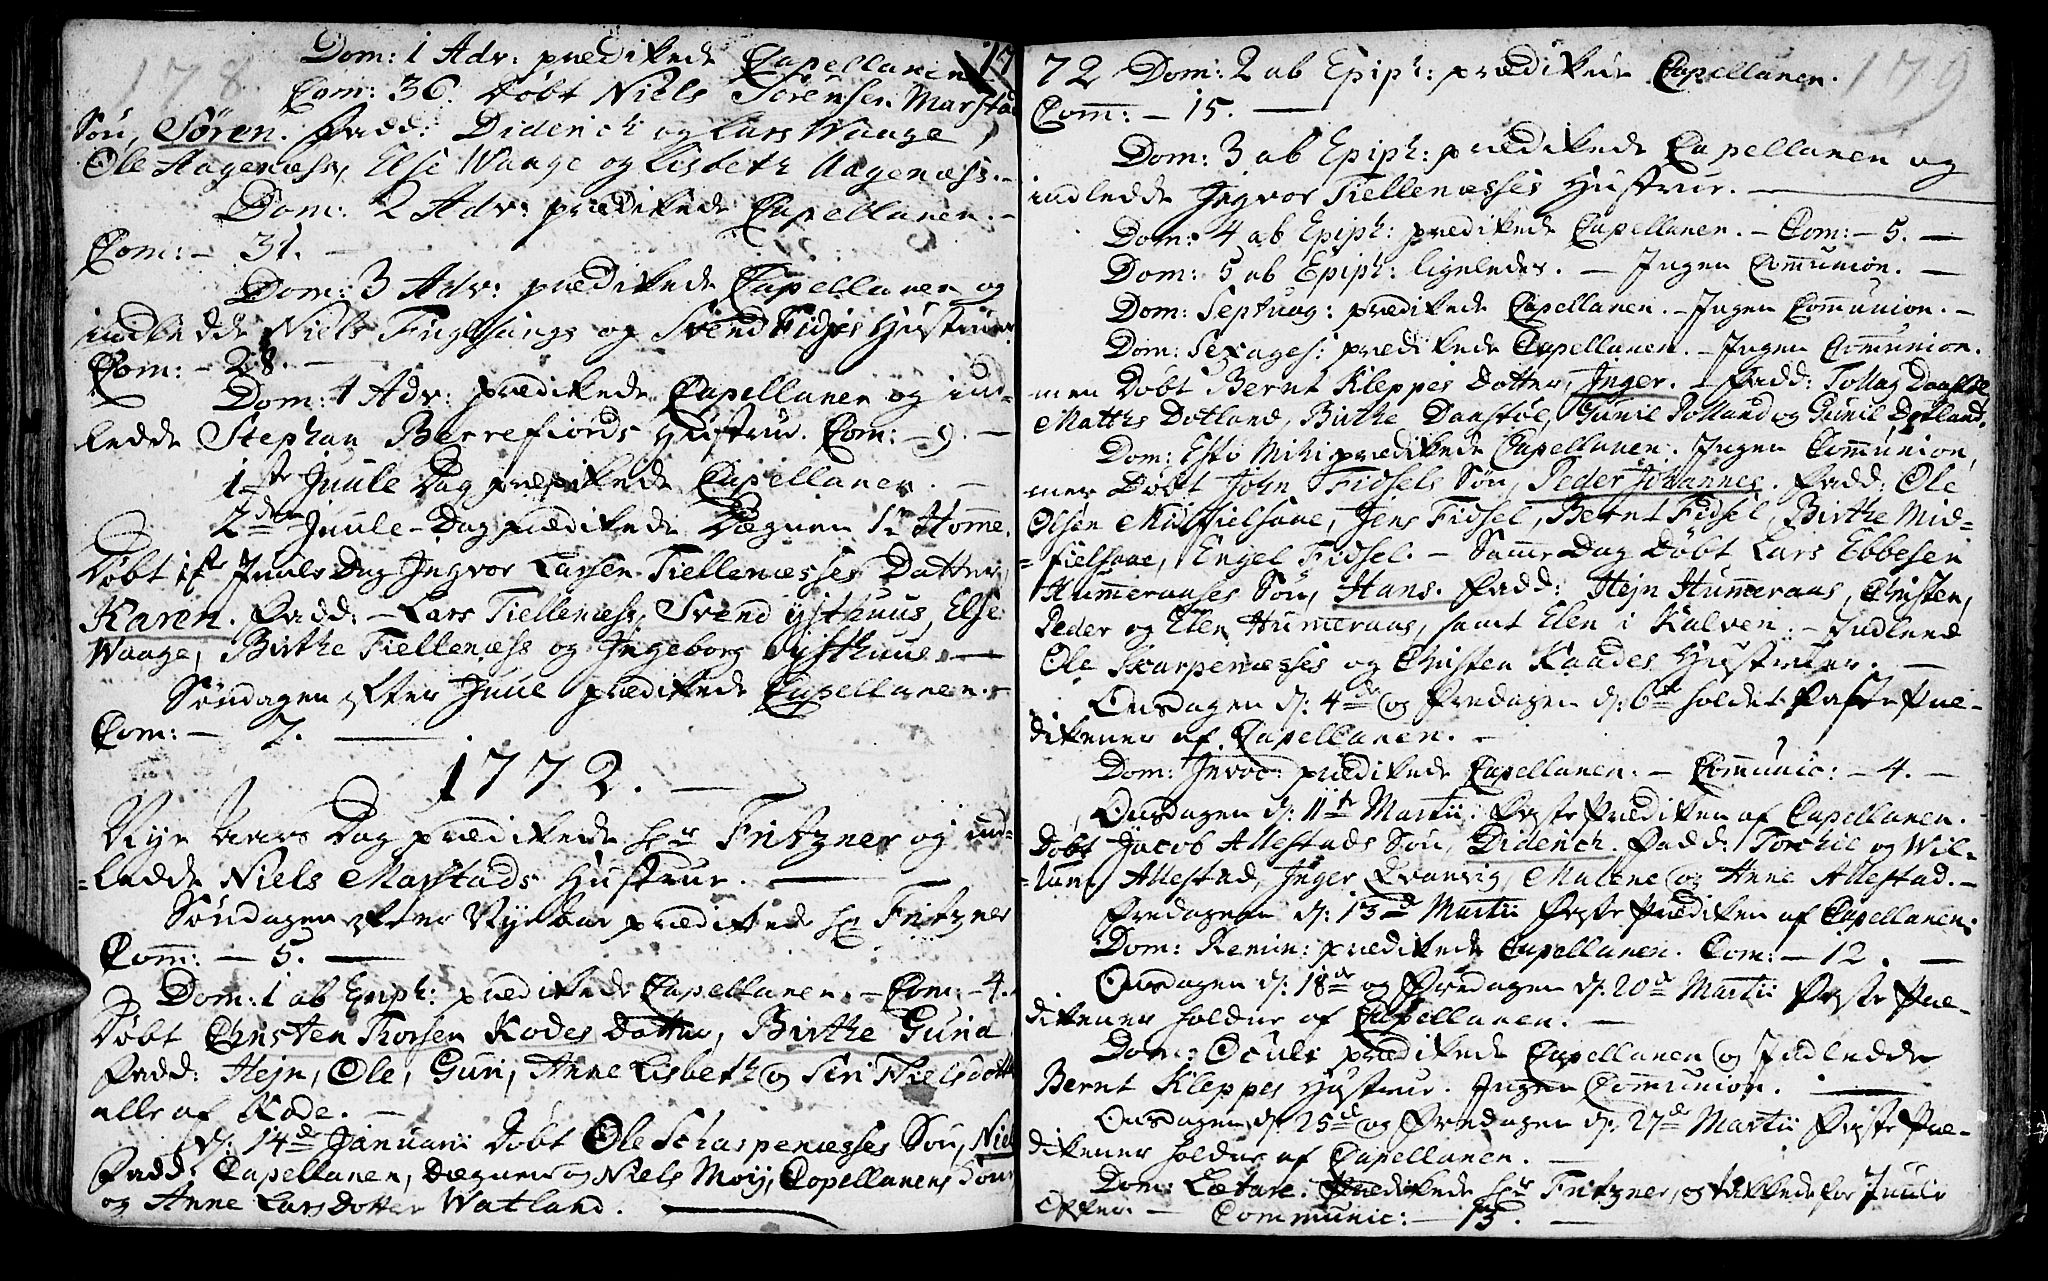 178
Dom: 1 Adv: prædikede Capellanen
Com: 36. Døbt Niels Sörensen Marstad
Søn, Sören. Fadd: Diderich og Lars Waage,
Ole Hagenæss, Else Waage og Lisbeth Aagenæss. -
Dom: 2 Adv: prædikede Capellanen. -
Com: - 31. -
Dom: 3 Adv: prædikede Capellanen og
indledde Niels Fuglsangs og Svend Fidjes Hustruer
Com: - 28. -
Dom: 4 Adv: prædikede Capellanen og ind-
ledde Stephan Berrefiords Hustrue. Com: - 9. -
1ste Juule Dag prædikede Capellanen. -
2den Juule-Dag prædikede Degnen i Homme.
Døbt 1ste Juule Dag Ingvor Larsen Tiellenæsses Datter,
Karen. Fadd: - Lars Tiellenæss, Svend Ysthuus, Else
Waage, Birthe Tiellenæss og Ingeborg Ysthuus. -
Søndagen efter Juul prædikede Capellanen. -
Com: - 7. -
1772. -
Nye Aars Dag prædikede Hr Fritzner og ind-
=ledde Niels Marstads Hustrue. -
Søndagen efter Nye Aar prædikede Hr Fritzner
Com: - 5. -
Dom: 1 ab Epiph: prædikede Capellanen. - Com: - 4.
Døbt Christen Thorsen Kodes Dotter, Birthe Guria
Fadd: Hejn, Ole, Guri, Anne Lisbeth og Siri Nielsdotter
alle af Kode. -
D: 14de Januarii Døbt Ole Scharpenæsses Søn, Niels
Fadd: Capellanen, Degnen og Niels Moy, Capellanens Kone
og Anne Larsdotter Watland. -
1772
179
Dom: 2 ab Epiph: prædikede Capellanen.
Com: - 15. -
Dom: 3 ab Epiph: prædikede Capellanen og
indledde Ingvor Tiellenæsses Hustrue. -
Dom: 4 ab Epiph: prædikede Capellanen. - Com: - 5. -
Dom: 5 ab Epiph: ligeledes. - Ingen Communion. -
Dom: Septuag: prædikede Capellanen. - Ingen Communion. -
Dom: Sexages: prædikede Capellanen. - Ingen Communion.
men Døbt Bernt Kleppes Dotter, Inger. - Fadd: Tollag
Matthis Dotland, Birthe Danstøl, Gunil Rolland og Gunil Dotland.
Dom: Esto Mihi prædikede Capellanen. Ingen Communion,
men Døbt John Fidsels Søn, Peder Johannes. Fadd: Ole
Olsen Midfielsaae, Jens Fidsel, Bernt Fidsel, Birthe Mid-
=fielsaae, Engel Fidsel. - Samme Dag Døbt Lars Ebbesen
Hummeraases Søn, Hans. Fadd: Hejn Hummeraas, Christen,
Peder og Elen Hummeraas, samt Elen i Kalven. - Indledde
Ole Skarpenæsses og Christen Kaades Hustruer. -
Onsdagen d: 4de og Fredagen d: 6te holdet Faste Præ-
dikener af Capellanen. -
Dom: Invoc: prædikede Capellanen. - Communic: - 4. -
Onsdagen d: 11te Martii: Faste Prædiken af Capellanen.
Døbt Jacob Allestads Søn, Diderich. Fadd: Torchil og Wil-
=lum Allestad, Inger Qvanvig, Malene og Anne Allestad. -
Fredagen d: 13de Martii Faste Prædiken af Capellanen.
Dom: Remin: prædikede Capellanen. Com: - 12. -
Onsdagen d: 18de og Fredagen d: 20de Martii Faste Præ-
dikener holdne af Capellanen. -
Dom: Oculi prædikede Capellanen og Indledde
Bernt Kleppes Hustrue. Ingen Communion. -
Onsdagen d: 25de og Fredagen d: 27de Martii Faste Præ-
dikener holdne af Capellanen. -
Dom: Lætare. Prædikede Hr Fritzner, og takkede for Juule
Offer. - Communic: - 13. -